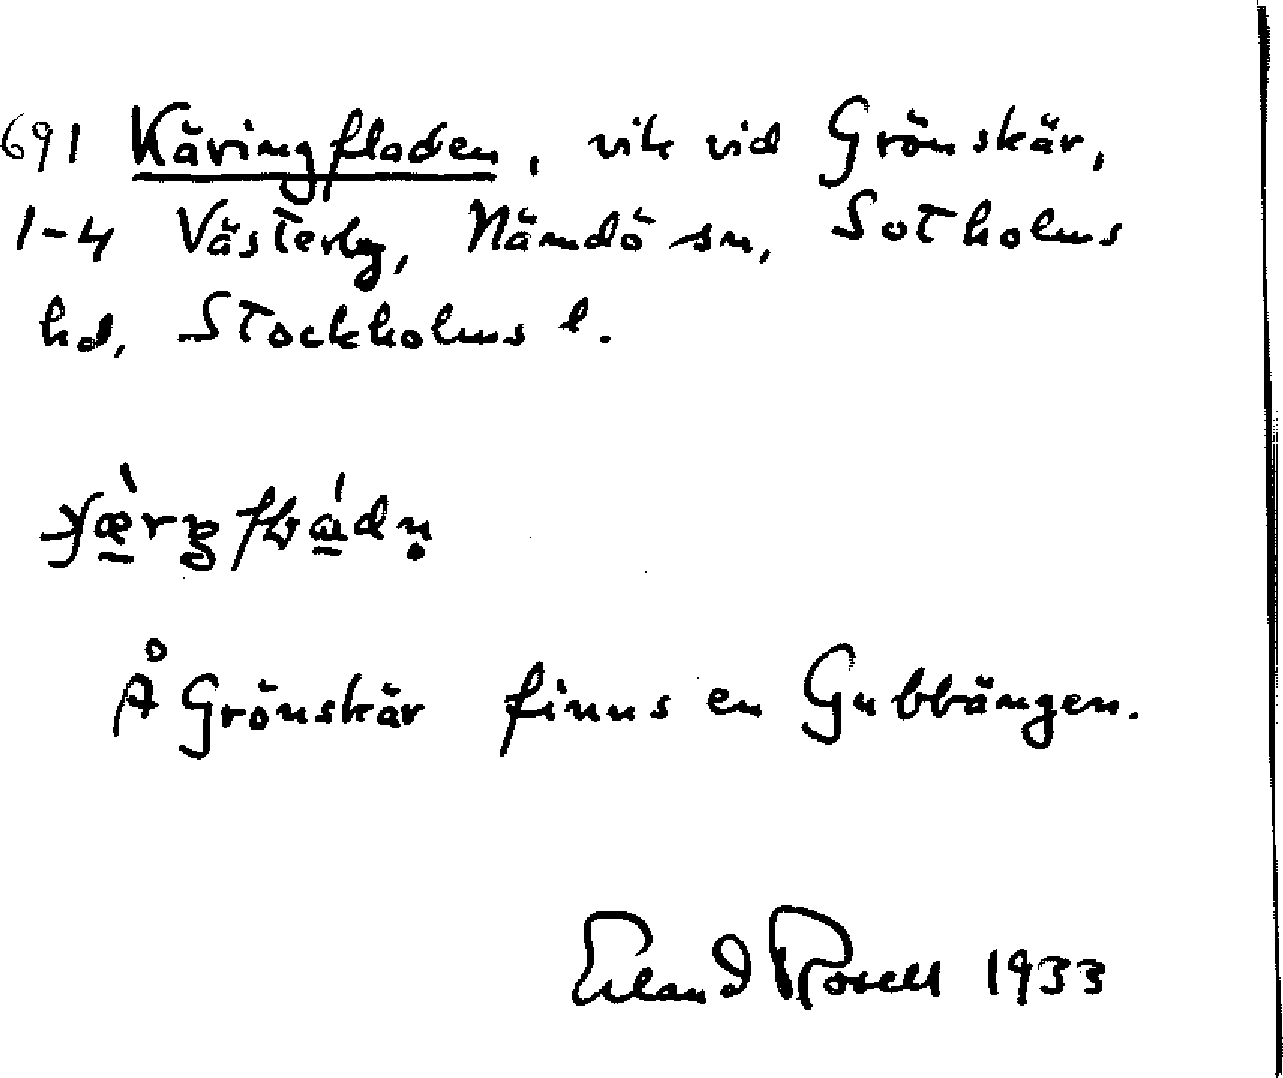 691 Käringfladen, vik vid Grönskär,
1-4 Västerby, Nämdö sn, Sotholms
hd, Stockholms l.
Å Grönskär finns en Gubbängen.
Erland Rosell 1933